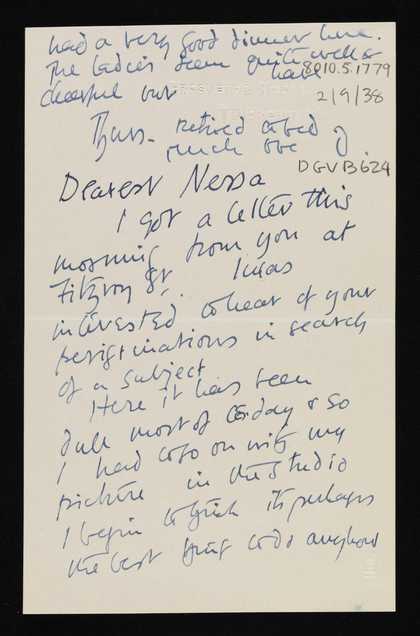 had a very good dinner here.
The ladies seem quite well &
cheerful but have
8010.5.1779
2/9/38
Thurs. retired to bed
much love D.
DGVB624
Dearest Nessa
I got a letter this
morning from you at
Fitzroy St. I was
interested to hear of your
perigrinations in search
of a subject
Here it has been
dull most of to day & so
I had to go on with my
picture in the studio
I begin to think its perhaps
the best thing to do anyhow